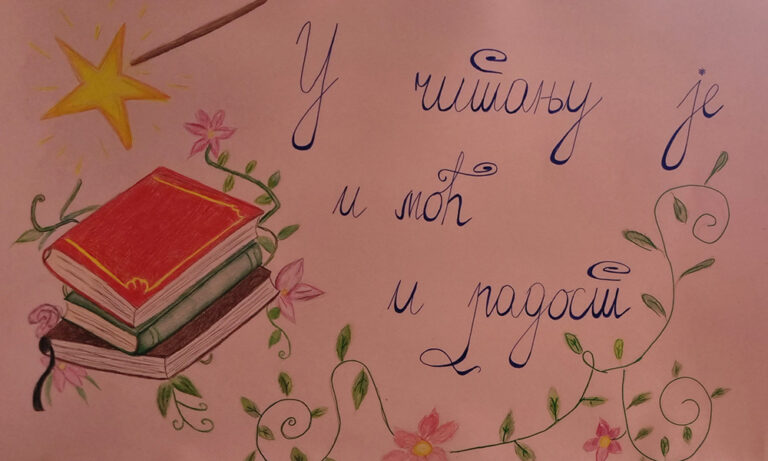 У читању је
и моћ
и радост